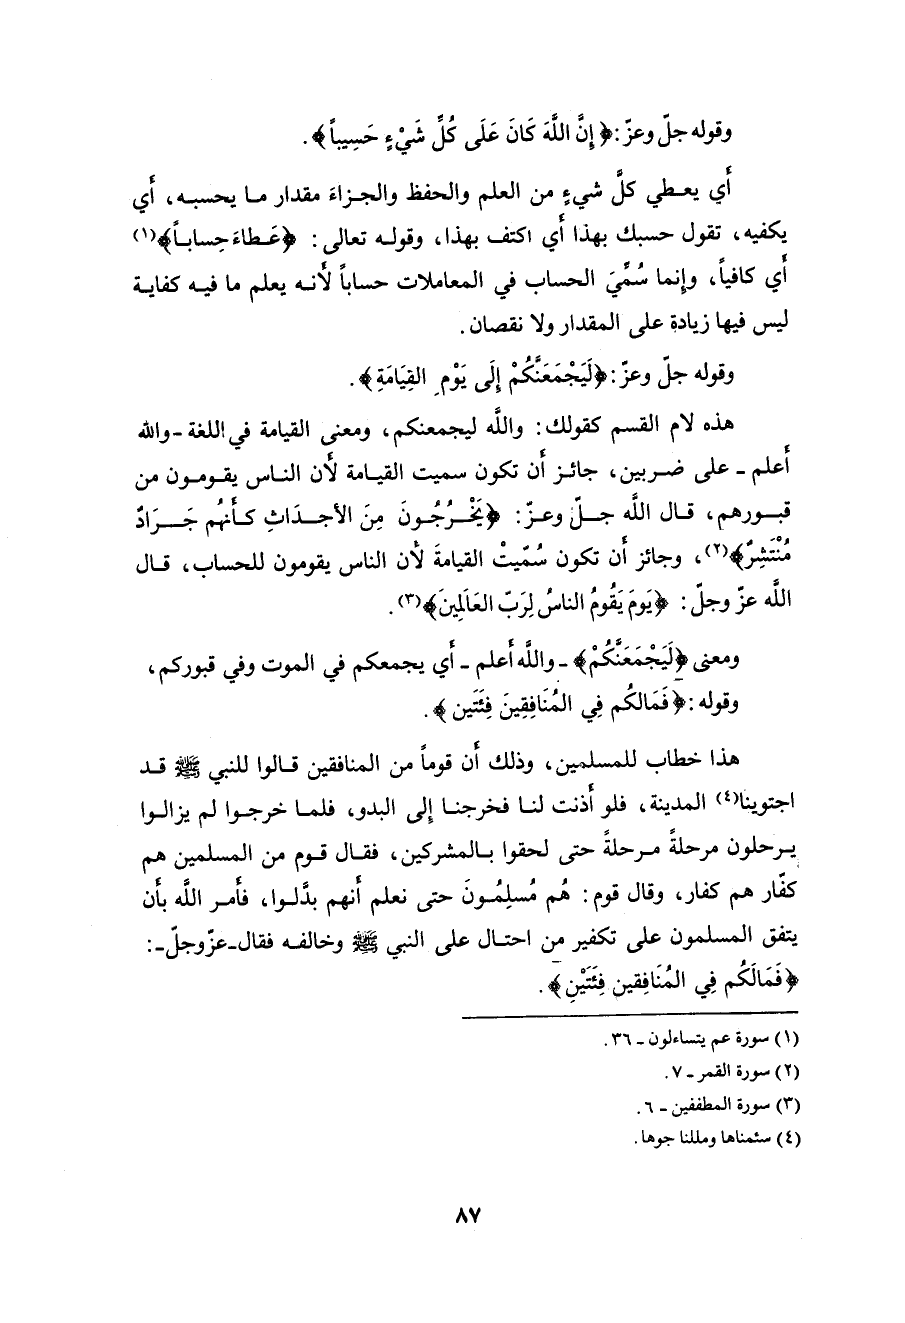 وقوله جلّ وعزّ: ﴿إِنَّ اللَّهَ كَانَ عَلَى كُلِّ شَيْءٍ حَسِيباً﴾.
أَي يعـطي كلَّ شيءٍ من العلم والحفظ والجـزاءَ مقدار مـا يحسبـه، أَي
يكفيه، تقول حسبك بهذا أَي اكتفـ بهذا، وقولـه تعالى: ﴿عَـطاءَ حِسابـاً﴾(١)
أَي كافياً، وإِنما سُمِّيَ الحساب في المعاملات حساباً لأَنـه يعلم ما فيه كفايـة
ليس فيها زيادة على المقدار ولا نقصان.
وقوله جلّ وعزّ: ﴿لَيَجْمَعَنَّكُمْ إِلَى يَوْمِ القِيَامَةِ﴾.
هذه لام القسم كقولك: واللَّه ليجمعنكم، ومعنى القيامة في اللغة ـ والله
أَعلم ـ على ضربين، جائـز أَن تكون سميت القيـامة لأَن النـاس يقومـون من
قبـورهم، قـال اللَّه جـلّ وعـزّ: ﴿يَخْـرُجُـونَ مِنَ الأجـدَاثِ كـأَنهُم جَـرَادٌ
مُنْتَشِرٌ﴾(٢)، وجائز أَن تكون سُمّيتْ القيامةَ لأَن الناس يقومون للحساب، قال
اللَّه عزّ وجلّ: ﴿يَومَ يَقُومُ الناسُ لِرَبّ العَالَمِينَ﴾(٣).
ومعنى ﴿لَيَجْمَعَنَّكُمْ﴾ ـ واللَّه أَعلم ـ أَي يجمعكم في الموت وفي قبوركم،
وقوله: ﴿فَمَالكُم فِي المُنَافِقِينَ فِئَتَين﴾.
هذا خطاب للمسلمين، وذلك أَن قوماً من المنافقين قـالوا للنبي ﷺ قـد
اجتوينا(٤) المدينة، فلو أَذنت لنـا فخرجنـا إِلى البدو، فلمـا خرجـوا لم يزالـوا
يـرحلون مرحلةً مـرحلةً حتى لحقوا بـالمشركين، فقـال قـوم من المسلمين هم
كفّار هم كفار، وقال قوم: هُم مُسلِمُـونَ حتى نعلم أَنهم بدَّلـوا، فأَمر اللَّه بأَن
يتفق المسلمون على تكفير من احتـال على النبي ﷺ وخالفـه فقال ـ عزّ وجلّ ـ:
﴿فَمَالَكُم فِي المُنَافِقين فِئَتَيْنِ﴾.
(١) سورة عم يتساءلون ـ ٣٦.
(٢) سورة القمر ـ ٧.
(٣) سورة المطففين ـ ٦.
(٤) سئمناها ومللنا جوها.
٨٧